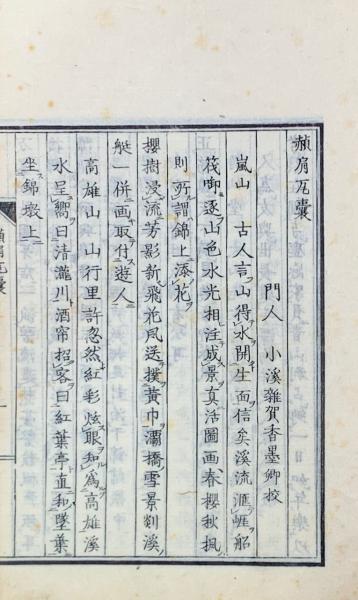 頳肩瓦囊
門人　小溪雜賀香墨卿校
嵐山　古人言山得水開生面信矣溪流滙崕船
筏啣逐山色水光相注成景真活圖画春櫻秋楓
則所謂錦上添花
櫻樹浸流芳影新飛花風送撲黃巾灞橋雪景剡溪
艇一併画取付遊人
高雄山　山行里許忽然紅彩炫眼知爲高雄溪
水呈嚮曰清瀧川酒帘招客曰紅葉亭直和墜葉
坐錦墩上